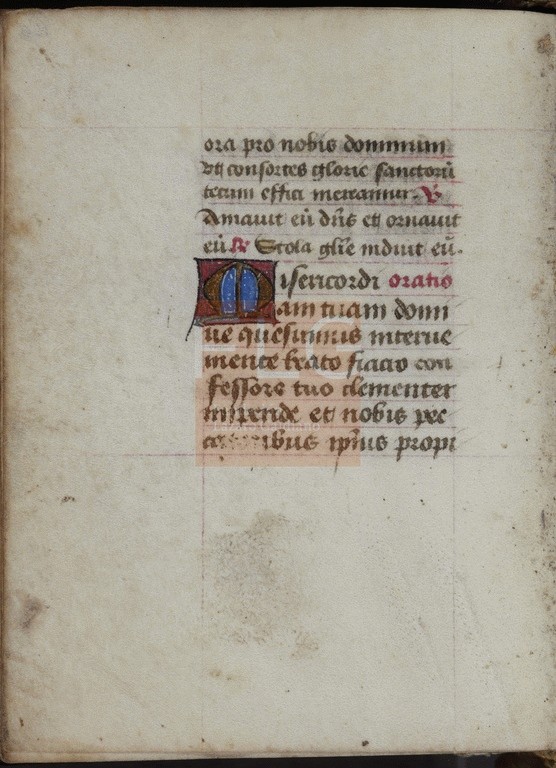 ora pro nobis dominum
vt consortes glorie sanctorū
tecum effici mereamur. V
Amauit eū dn̄s et ornauit
eū. R Stola glīe induit eū.
Misericordi oratio
am tuam domi
ne quesumus interue
niente beato fiacio con
fessore tuo clementer
impende et nobis pec
catoribus ip̄ius propi